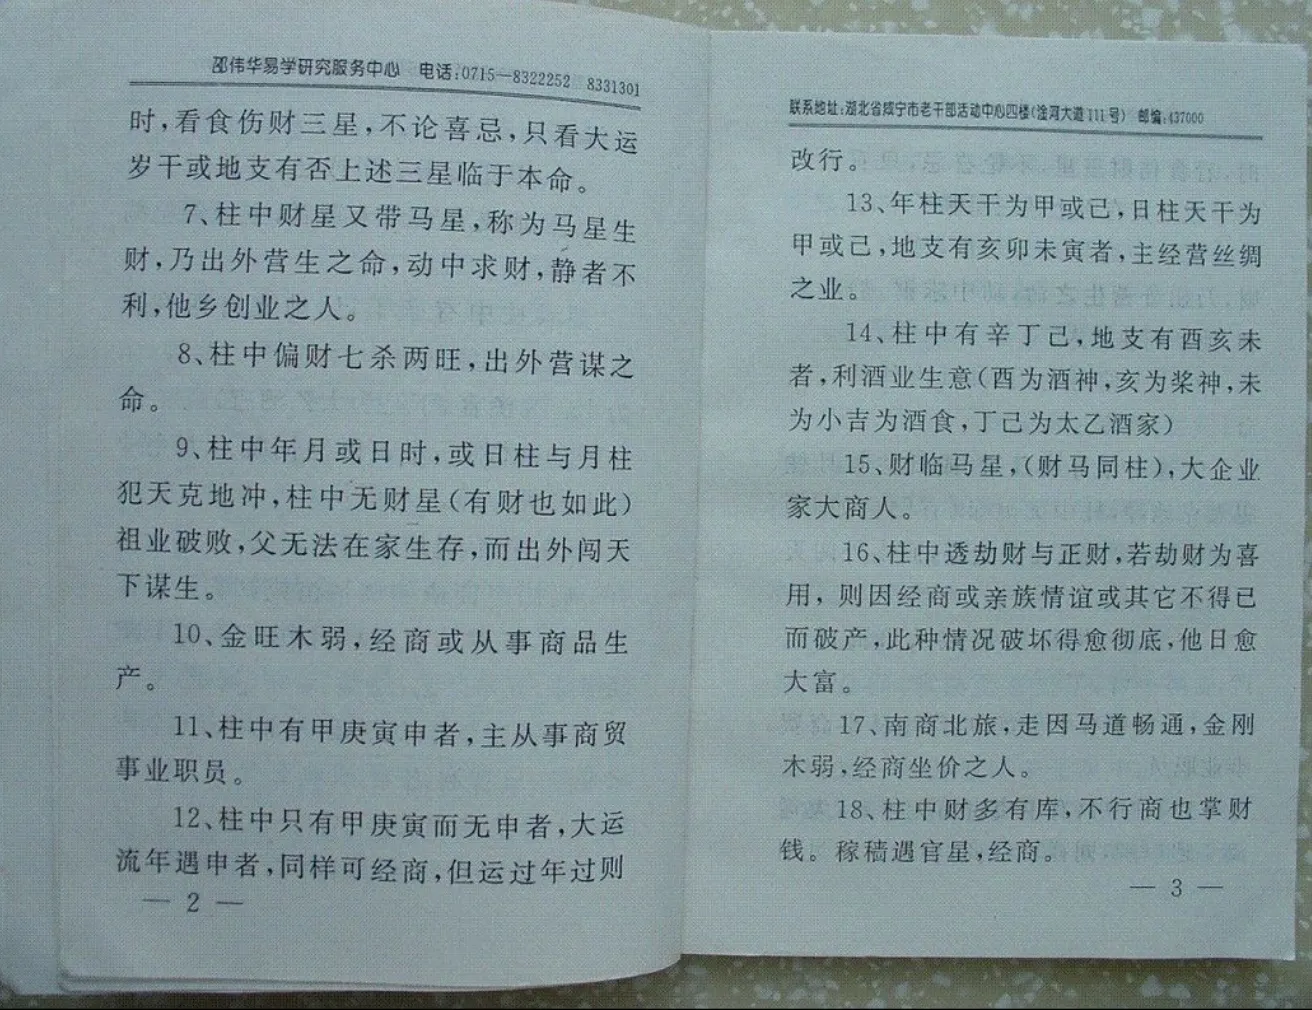 邵伟华易学研究服务中心 电话:0715—8322252 8331301
时,看食伤财三星,不论喜忌,只看大运
岁干或地支有否上述三星临于本命。
7、柱中财星又带马星,称为马星生
财,乃出外营生之命,动中求财,静者不
利,他乡创业之人。
8、柱中偏财七杀两旺,出外营谋之
命。
9、柱中年月或日时,或日柱与月柱
犯天克地冲,柱中无财星(有财也如此)
祖业破败,父无法在家生存,而出外闯天
下谋生。
10、金旺木弱,经商或从事商品生
产。
11、柱中有甲庚寅申者,主从事商贸
事业职员。
12、柱中只有甲庚寅而无申者,大运
流年遇申者,同样可经商,但运过年过则
— 2 —
联系地址:湖北省咸宁市老干部活动中心四楼(淦河大道111号) 邮编:437000
改行。
13、年柱天干为甲或己,日柱天干为
甲或己,地支有亥卯未寅者,主经营丝绸
之业。
14、柱中有辛丁己,地支有酉亥未
者,利酒业生意(酉为酒神,亥为桨神,未
为小吉为酒食,丁己为太乙酒家)
15、财临马星,(财马同柱),大企业
家大商人。
16、柱中透劫财与正财,若劫财为喜
用,则因经商或亲族情谊或其它不得已
而破产,此种情况破坏得愈彻底,他日愈
大富。
17、南商北旅,走因马道畅通,金刚
木弱,经商坐价之人。
18、柱中财多有库,不行商也掌财
钱。稼穑遇官星,经商。
— 3 —